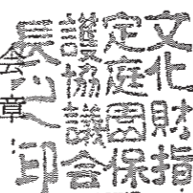 文化財指
定庭園保
護協議会
長之印
会章